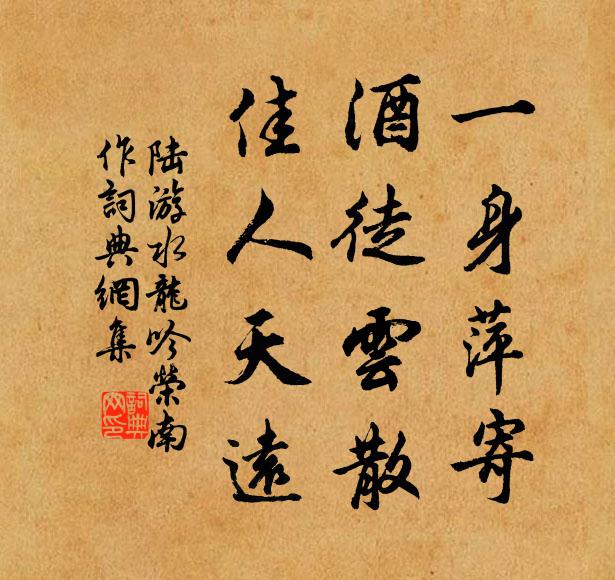 一身萍寄
酒徒雲散
佳人天遠
陆游水龍吟榮南
作詞典網集
詞典网印